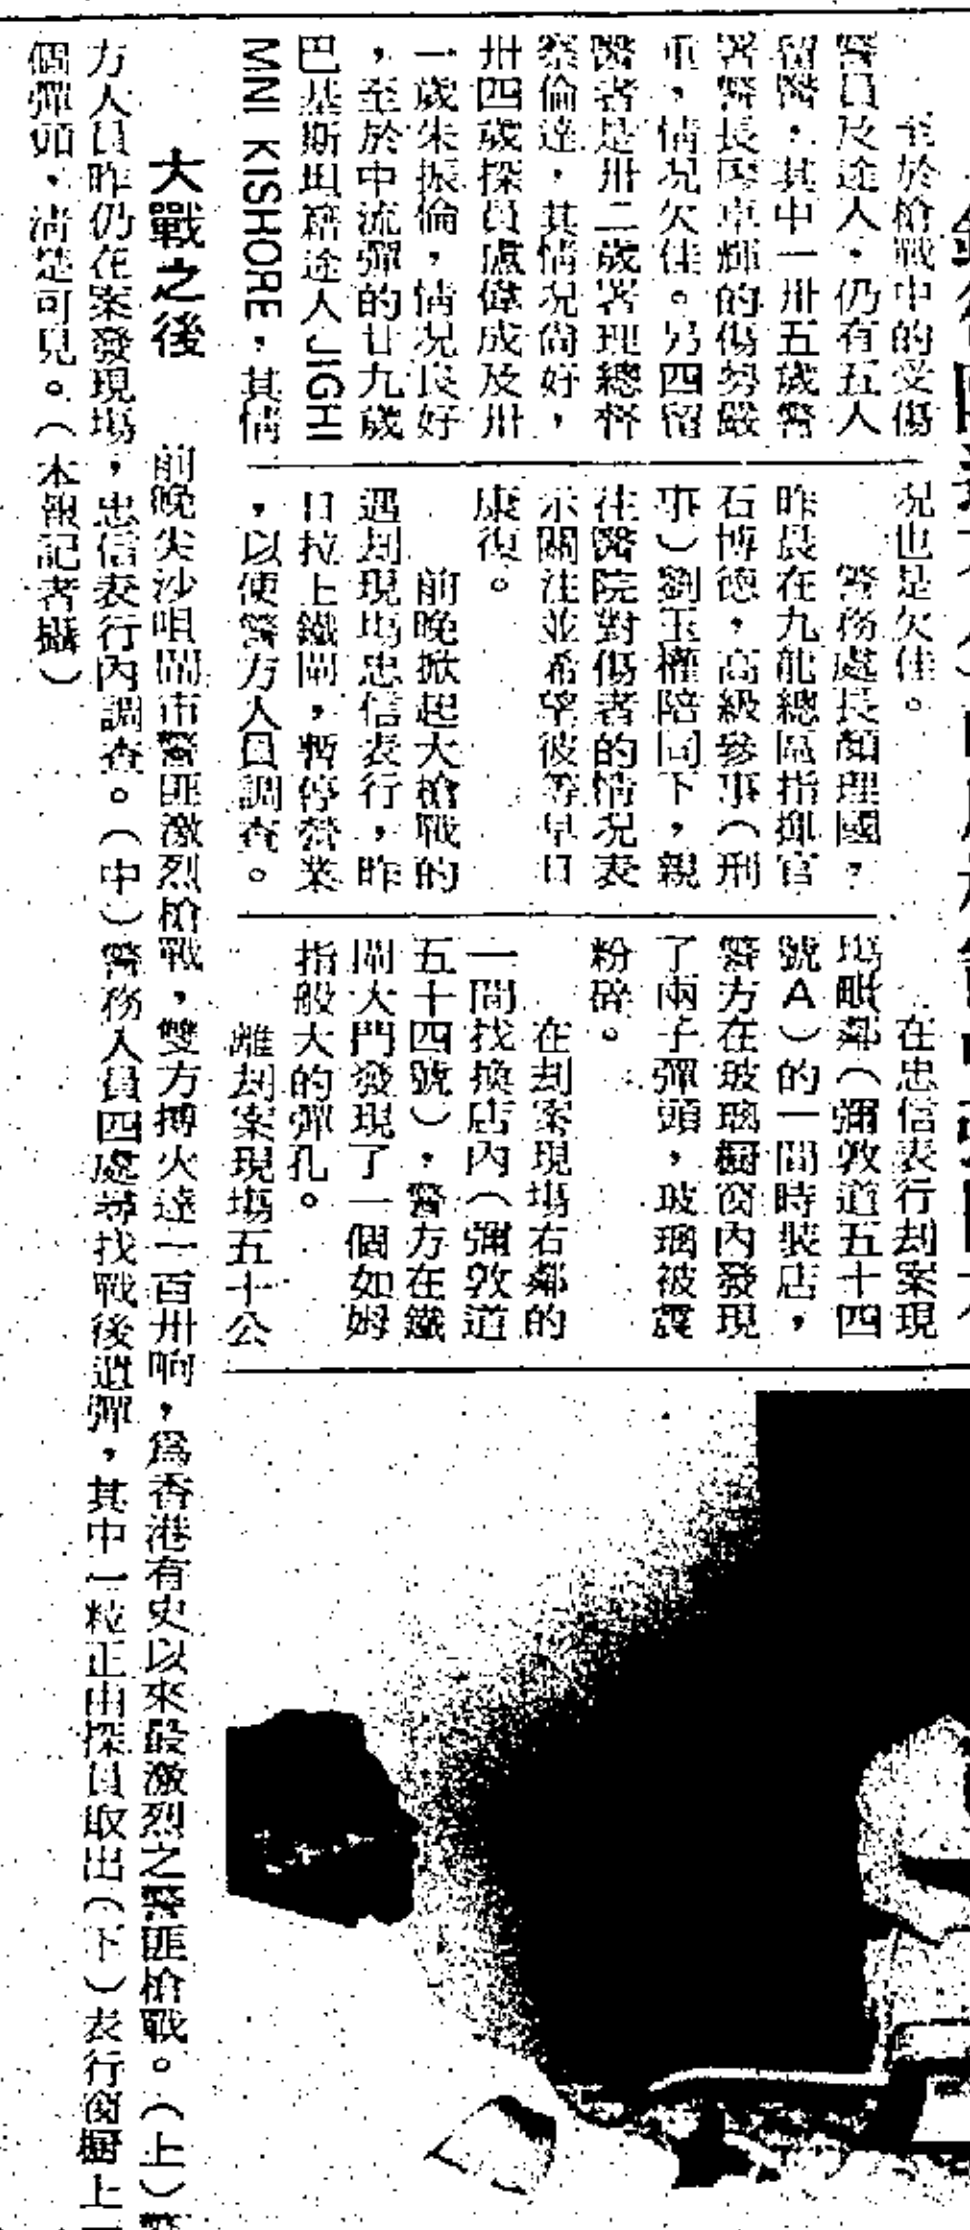 至於槍戰中的受傷
警員及途人，仍有五人
留醫，其中一卅五歲警
署警長陳卓輝的傷勢嚴
重，情况欠佳。另四留
醫者是卅二歲署理總督
察倫達，其情况尚好，
卅四歲探員盧偉成及卅
一歲朱振倫，情况良好
，至於中流彈的廿九歲
巴基斯坦籍途人JIGHI
MNI KISHORE，其情
况也是欠佳。
警務處長顏理國，
昨晨在九龍總區指揮官
石博德，高級參事（刑
事）劉玉權陪同下，親
往醫院對傷者的情况表
示關注並希望彼等早日
康復。
前晚掀起大槍戰的
遇刦現塲忠信表行，昨
日拉上鐵閘，暫停營業
，以便警方人員調查。
在忠信表行刦案現
塲毗鄰（彌敦道五十四
號A）的一間時裝店，
警方在玻璃櫥窗內發現
了兩子彈頭，玻璃被震
粉碎。
在刦案現塲右鄰的
一間找換店內（彌敦道
五十四號），警方在鐵
閘大門發現了一個如姆
指般大的彈孔。
離刦案現塲五十公
大戰之後
前晚尖沙咀鬧市警匪激烈槍戰，雙方搏火達一百卅响，爲香港有史以來最激烈之警匪槍戰。（上）警
方人員昨仍在案發現塲，忠信表行內調查。（中）警務人員四處尋找戰後遺彈，其中一粒正由探員取出（下）表行窗櫥上
個彈頭，清楚可見。（本報記者攝）